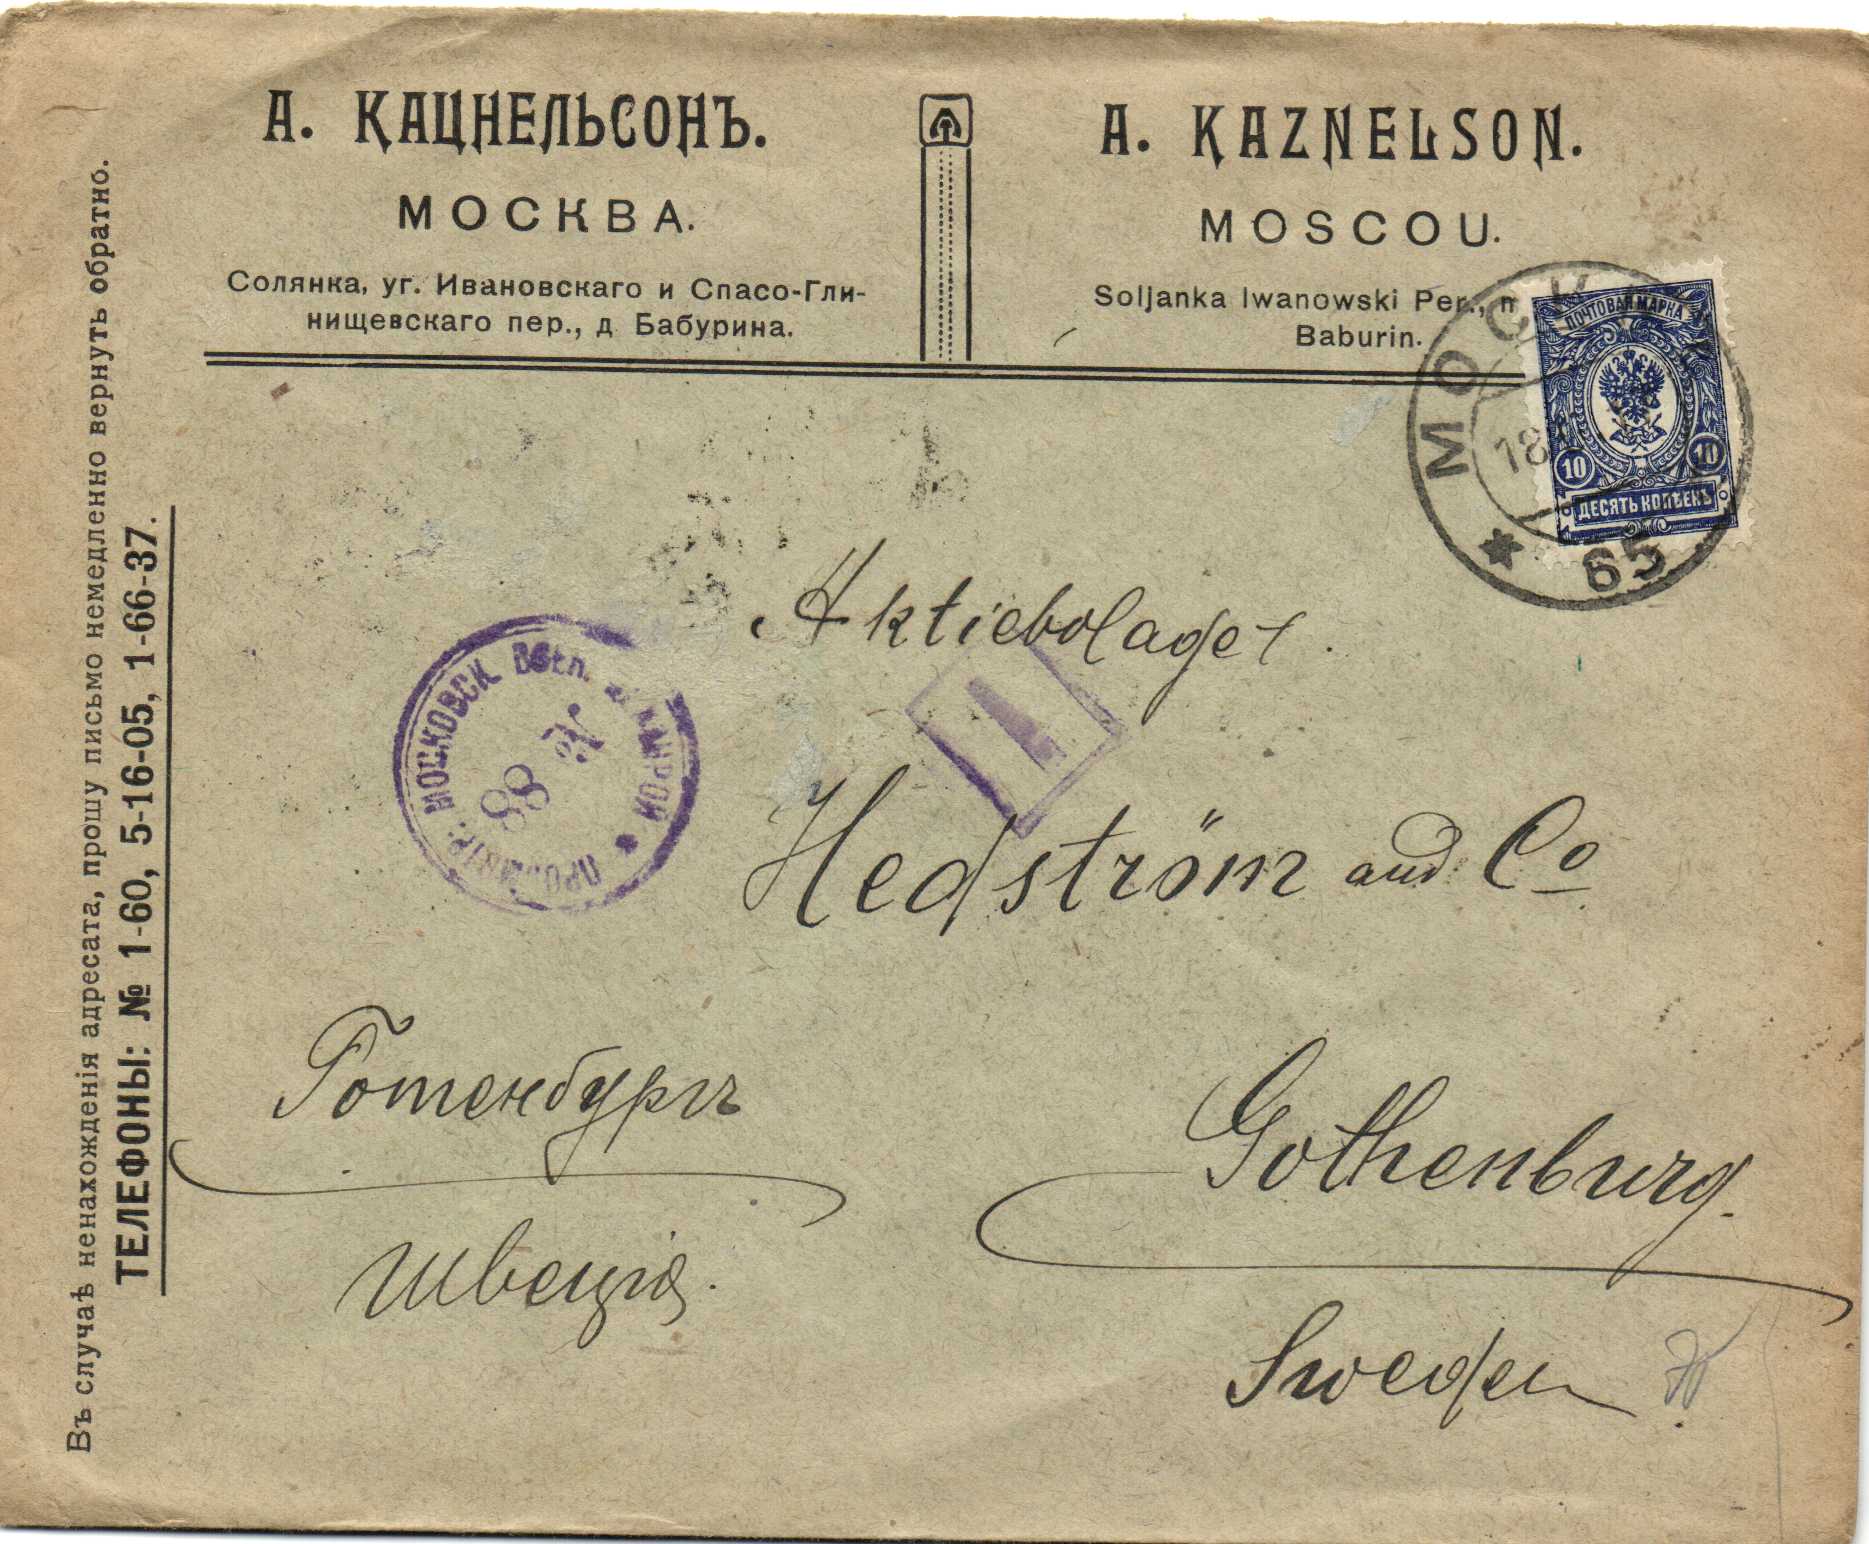 А. КАЦНЕЛЬСОНЪ.
МОСКВА.
Солянка, уг. Ивановскаго и Спасо-Гли-
нищевскаго пер., д Бабурина.
A. KAZNELSON.
MOSCOU.
Soljanka Iwanowski Per., n
Baburin.
ПОЧТОВАЯ МАРКА
10 10
ДЕСЯТЬ КОПѢЕКЪ
МОСК
18
65
Въ случаѣ ненахожденія адресата, прошу письмо немедленно вернуть обратно.
ТЕЛЕФОНЫ: № 1-60, 5-16-05, 1-66-37.
МОСКОВСК. ВОЕН. ЦЕНЗУРОЙ
№ 88
Aktiebolaget
Hedström and Co
Готенбургъ
Gothenburg.
Швеція.
Sweden